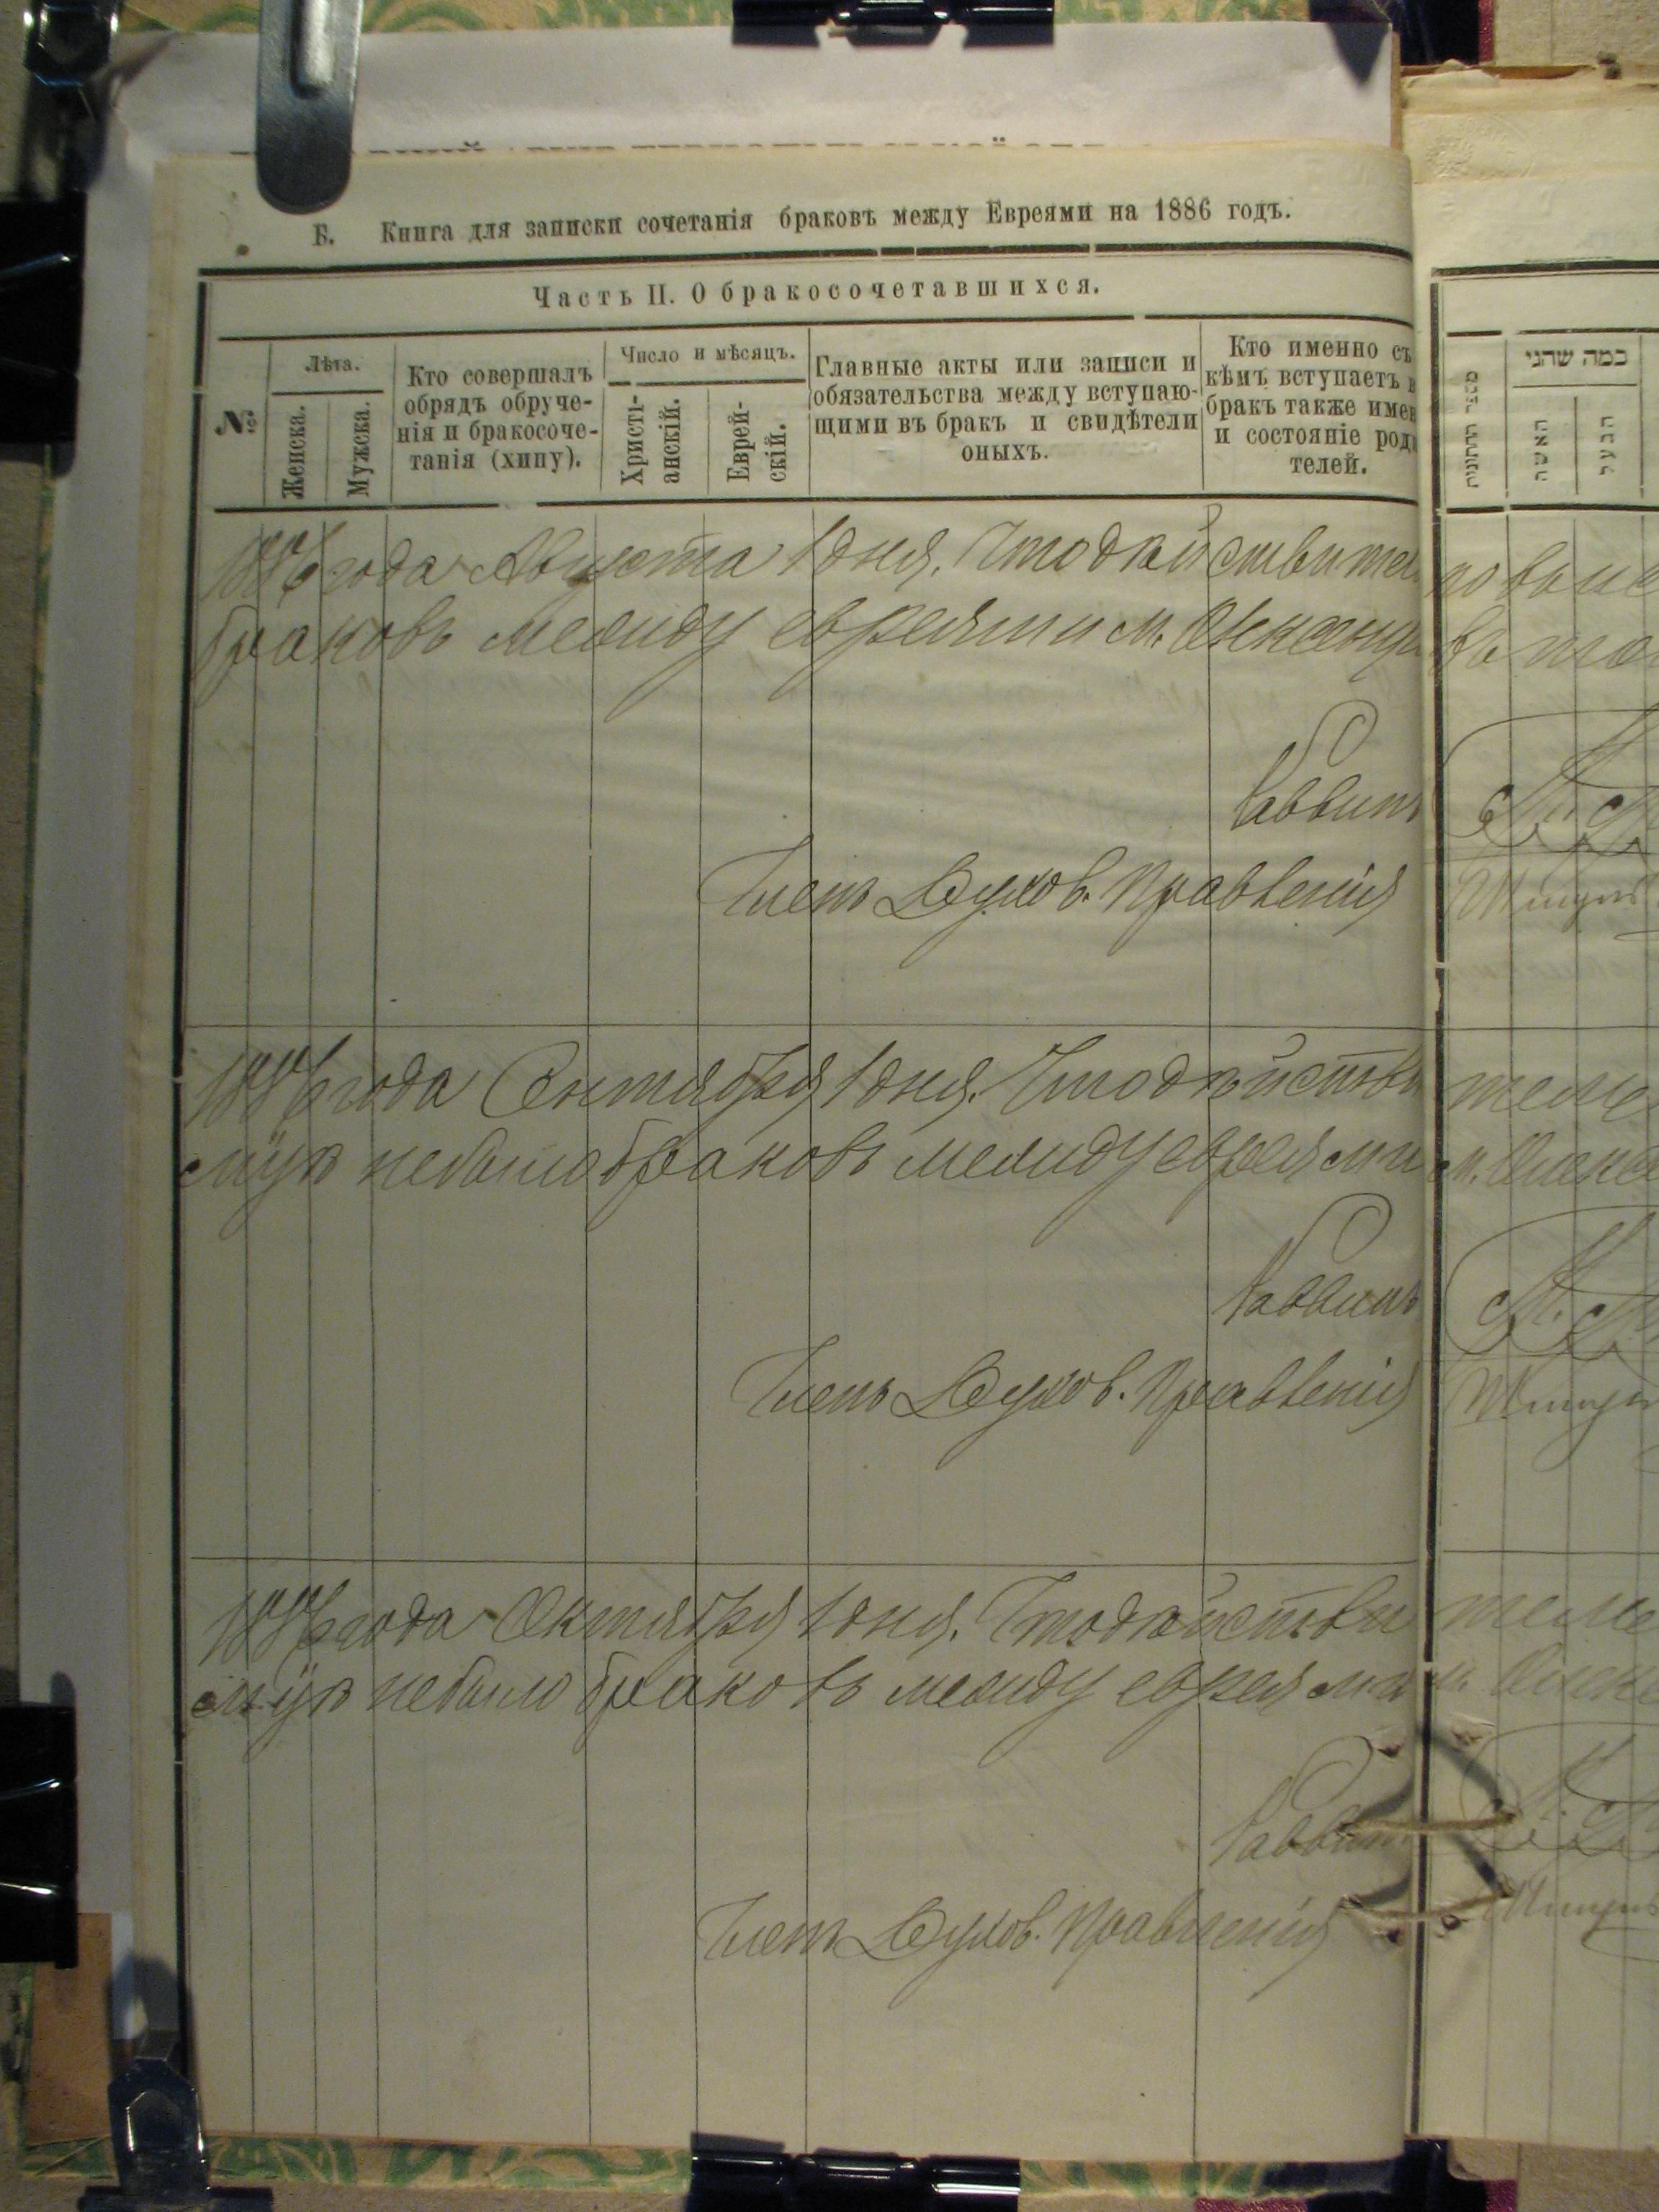 Б. Книга для записки сочетанія браковъ между Евреями на 1886 годъ.
Часть II. О бракосочетавшихся.
№
Лѣта.
Женска.
Мужска.
Кто совершалъ
обрядъ обруче-
нія и бракосоче-
танія (хипу).
Число и мѣсяцъ.
Христі-
анскій.
Еврей-
скій.
Главные акты или записи и
обязательства между вступаю-
щими въ бракъ и свидѣтели
оныхъ.
Кто именно съ
кѣмъ вступаетъ в
бракъ также имен
и состояніе роди
телей.
כמה שהני
האשה
הבעל
1886 года Августа 1 дня. Что дѣйствител
браковъ между евреями м. Олексенц
Раввинъ
Членъ Духов. Правленія
1886 года Сентября 1 дня. Что дѣйстви
небыло браковъ между евреями м. Олекс
Раввинъ
Членъ Духов. Правленія
1886 года Октября 1 дня. Что дѣйстви
небыло браковъ между евреями
Раввинъ
Членъ Духов. Правленія